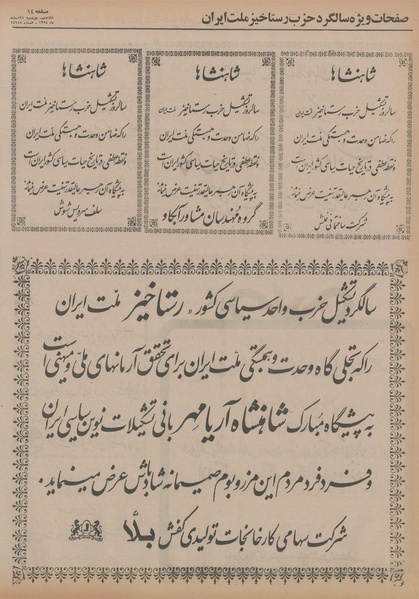 صفحات ویژه سالگرد حزب رستاخیز ملت ایران
صفحه ۱٤
شاهنشاها
سالروز تشکیل حزب رستاخیز ملت ایران
را که ضامن وحدت و همبستگی ملت ایران
و نقطه عطفی در تاریخ حیات سیاسی کشور ایران است
به پیشگاه آن رهبر عالیقدر تهنیت عرض مینماید
شرکت ساختمانی
شاهنشاها
سالروز تشکیل حزب رستاخیز ملت ایران
را که ضامن وحدت و همبستگی ملت ایران
و نقطه عطفی در تاریخ حیات سیاسی کشور ایران است
به پیشگاه آن رهبر عالیقدر تهنیت عرض مینماید
گروه مهندسان مشاور آبکاو
شاهنشاها
سالروز تشکیل حزب رستاخیز ملت ایران
را که ضامن وحدت و همبستگی ملت ایران
و نقطه عطفی در تاریخ حیات سیاسی کشور ایران است
به پیشگاه آن رهبر عالیقدر تهنیت عرض مینماید
سلف سرویس شوش
سالگرد تشکیل حزب واحد سیاسی کشور « رستاخیز ملت ایران
را که تجلی گاه وحدت و همبستگی ملت ایران برای تحقق آرمانهای ملی و میهنی است
به پیشگاه مبارک شاهنشاه آریامهر بانی تشکیلات نوین سیاسی ایران
و فرد فرد مردم این مرز و بوم صمیمانه شادباش عرض مینماید.
شرکت سهامی کارخانجات تولیدی کفش بلا